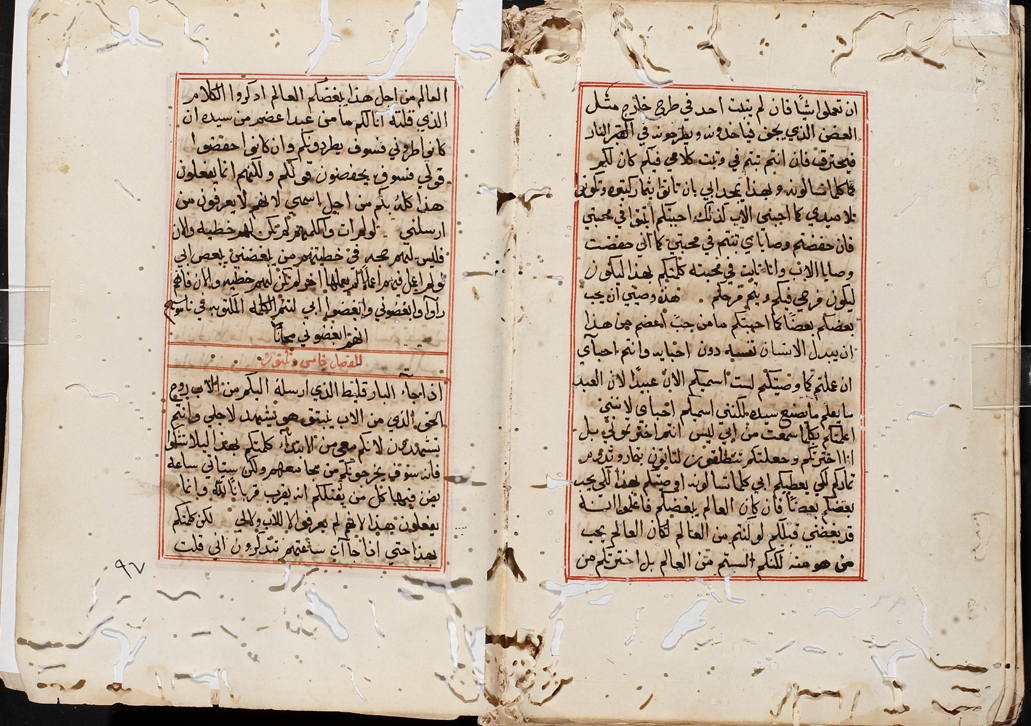 ان تعملوا شيًا فان لم يثبت احد في طرح خارج مثل
الغصن الذي يجف فياخدونه ويطرحونه في النار
فيحترق فان انتم ثبتم في وثبت كلامي فيكم كان لكم
كلما تسالونه وبهذا يمجد ابي بان تاتوا بثمار كثيره وتكونوا
تلاميدي كما احبني الاب كذلك احببتكم اثبتوا في محبتي
فان حفضتم وصاياي ثبتم في محبتي كما اني حفضت
وصايا الاب وانا ثابت في محبته كلمتكم بهذا ليكون
ليكون فرحي فيكم ويتم فرحكم هذه وصيتي ان يحب
بعضكم بعضًا كما احببتكم ما من حب اعضم من هذا
ان يبدل الانسان نفسه دون احبايه وانتم احباي
ان عملتم كما وصيتكم لست اسميكم الان عبيدًا لان العبد
ما يعلم ما يصنع سيده لكنني اسميكم احباي لانني
اعلمتكم بكلما سمعت من ابي ليس انتم اخترتموني بل
انا اخترتكم وجعلتكم تنطلقون لتاتون بثمار وتدوم
ثماركم لكي يعطيكم ابي كلما تسالونه اوصيتكم بهذا لكي يحب
بعضكم بعضًا فان كان العالم يبغضكم فاعلموا انه
قد بغضني قبلكم لو كنتم من العالم لكان العالم يحب
من هو منه لكنكم لستم من العالم بل اخترتكم من
العالم من اجل هذا يبغضكم العالم ادكروا الكلام
الذي قلته انا لكم ما من عبد اعضم من سيده ان
كانوا طردوني فسوف يطردونكم وان كانوا حفضوا
قولي فسوف يحفضون قولكم ولكنهم انما يفعلون
هذا كله بكم من اجل اسمي لانهم لا يعرفون من
ارسلني لو لم ات واكلمهم لم تكن لهم خطيه والان
فليس لهم حجه في خطيتهم من يبغضني يبغض ابي
لو لم اعمل فيهم اعمالًا لم يعملها اخر لم تكن لهم خطيه والان فانهم
راوا وابغضوني وابغضوا ابي لتتم الكلمه المكتوبه في ناموسهم
انهم ابغضوني مجانًا
الفصل خامس وتلتون
ادا جاء البارقليط الذي ارسله اليكم من الاب روح
الحق الذي من الاب ينبثق هو يشهد لاجلي وانتم
تشهدون لانكم معي من الابتداء كلمتكم بهذا ليلا تشكوا
فانه سوف يخرجونكم من مجامعهم ولكن ستاتي ساعه
يضن فيها كل من يقتلكم انه يقرب قربانًا لله وانما
يفعلون بهذا لانهم لم يعرفوا لا الاب ولا لي لكن كلمتكم
بهذا حتي ادا جاءت ساعتهم تتدكرون اني قلت
٩٧